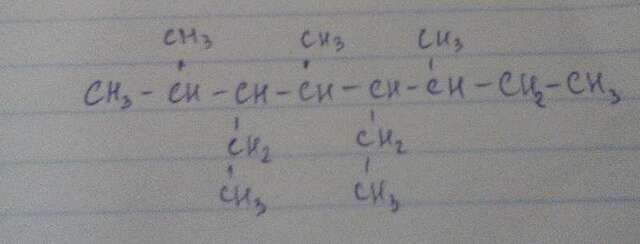 CH3 CH3 CH3
CH3 - CH - CH - CH - CH - CH - CH2 - CH3
CH2 CH2
CH3 CH3